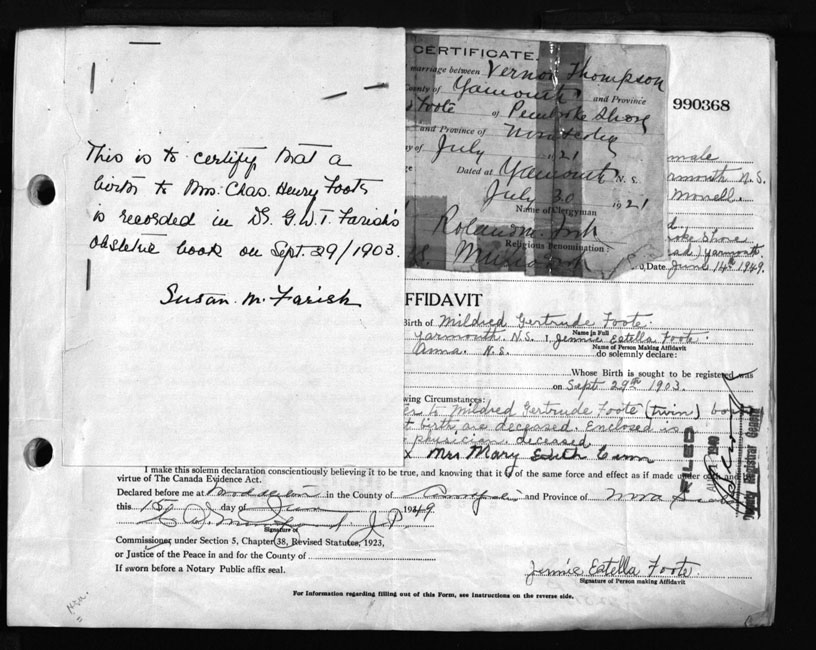 This is to certify that a
birth to Mrs. Chas. Henry Foote
is recorded in Dr. G.W.T. Farish's
obstetric book on Sept. 29/1903.
Susan. M. Farish
CERTIFICATE.
marriage between Vernon Thompson
ounty of Yarmouth and Province
Foote of Pembroke Shore
and Province of
y of July 1921
Dated at Yarmouth N. S.
July 30 1921
Name of Clergyman
Religious Denomination
990368
male
armouth N.S.
oke Shore
Yarmouth
Date June 14th 1949.
FFIDAVIT
Birth of Mildred Gertrude Foote.
Name in Full
Yarmouth. N.S. I, Jennie Estella Foote.
Name of Person Making Affidavit
N.S. do solemnly declare:
Whose Birth is sought to be registered was
on Sept 29th 1903.
wing Circumstances:
er to Mildred Gertrude Foote (twin) bo
t birth are deceased. Enclosed is
physician deceased
x Mrs Mary Edith Cann
I make this solemn declaration conscientiously believing it to be true, and knowing that it is of the same force and effect as if made under oath and
virtue of The Canada Evidence Act.
Declared before me at in the County of and Province of Nova
this 15 day of June 1949
J.P.
Signature of
Commissioner under Section 5, Chapter 38, Revised Statutes, 1923,
or Justice of the Peace in and for the County of
If sworn before a Notary Public affix seal.
Jennie Estella Foote.
Signature of Person making Affidavit
For Information regarding filling out of this Form, see instructions on the reverse side.
FILED
Deputy Registrar General